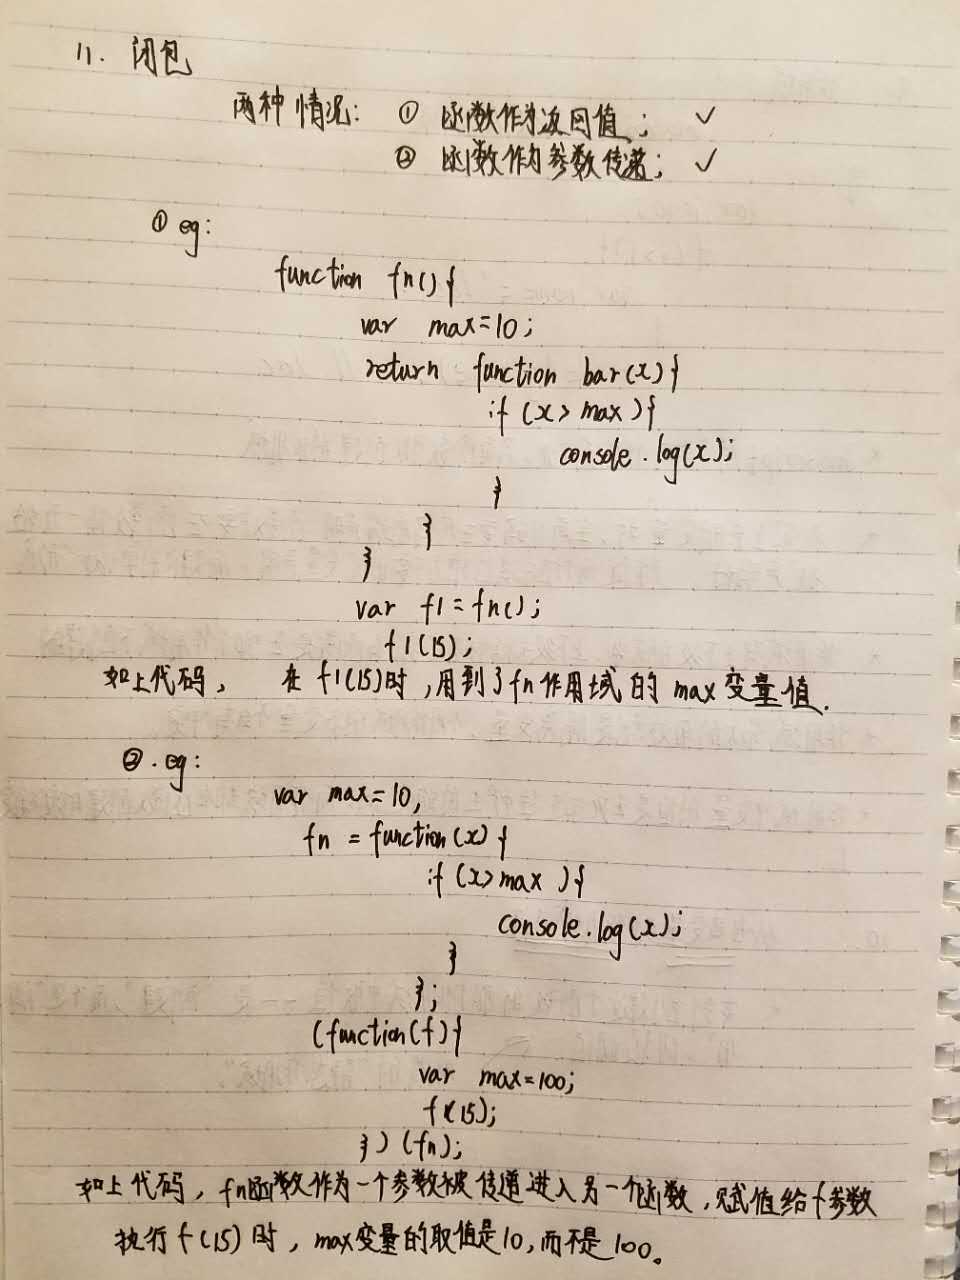 11. 闭包
两种情况: ① 函数作为返回值; ✓
② 函数作为参数传递; ✓
① eg:
function fn(){
var max=10;
return function bar(x){
if (x>max){
console.log(x);
}
}
}
var f1=fn();
f1(15);
如上代码, 在f1(15)时,用到了fn作用域的max变量值.
②. eg:
var max=10,
fn = function(x){
if (x>max){
console.log(x);
}
};
(function(f){
var max=100;
f(15);
})(fn);
如上代码, fn函数作为一个参数被传递进入另一个函数, 赋值给f参数
执行f(15)时, max变量的取值是10,而不是100。